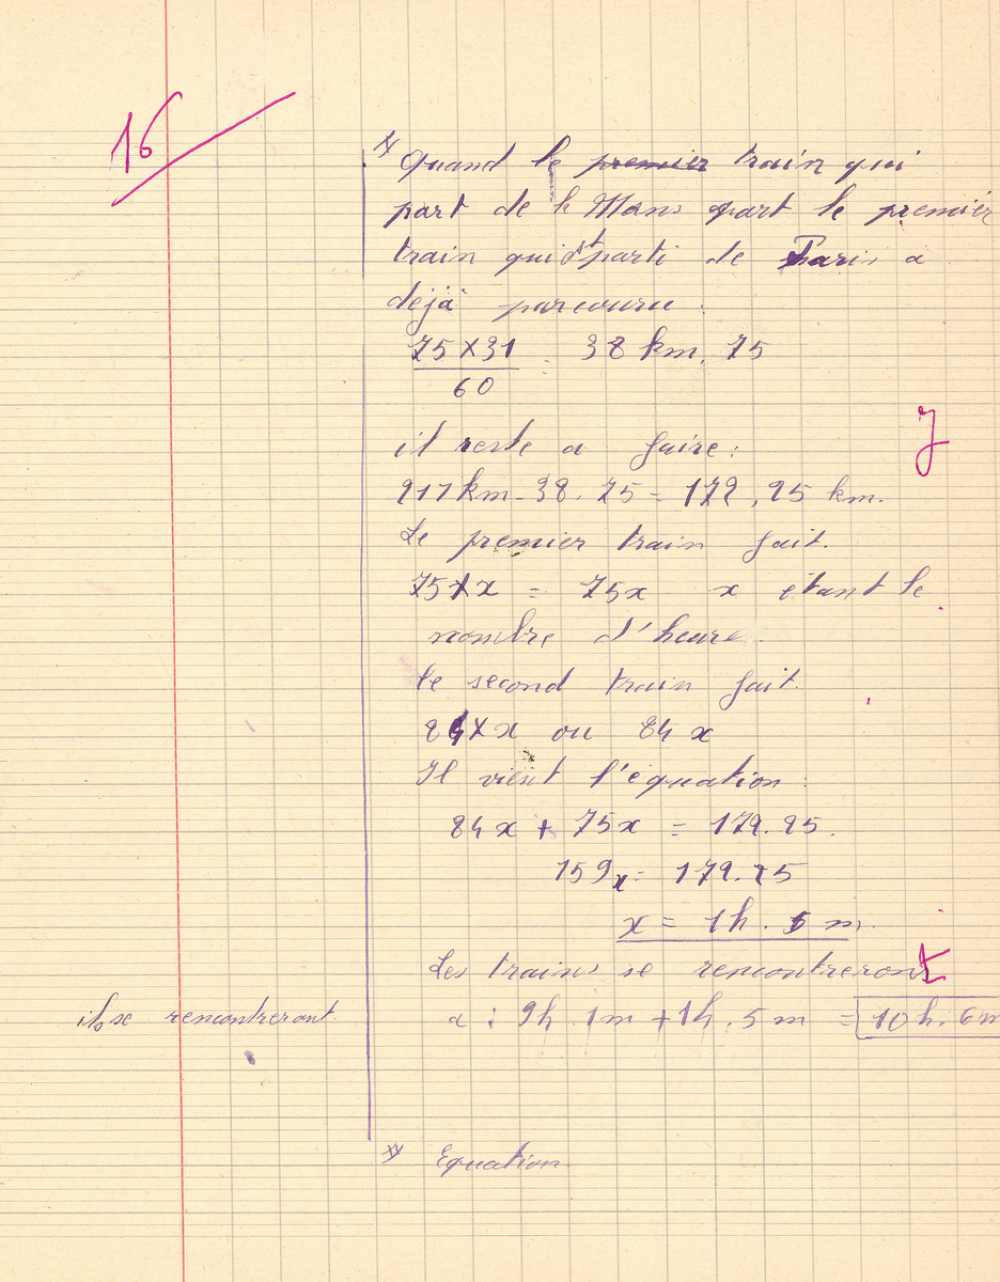 16
1/ Quand le premier train qui
part de le Mans part le premier
train qui est parti de Paris a
déjà parcouru.
75 X 31 = 38 km. 75
60
il reste a faire :
217 km - 38. 75 = 178, 25 km.
Le premier train fait.
75 X x = 75x x étant le
nombre d'heure.
le second train fait.
84 X x ou 84 x
Il vient l'équation :
84 x + 75x = 178.25.
159x = 178.25
x = 1h. 5 m.
Les trains se rencontreront
ils se rencontreront. a : 9h 1m + 1h. 5 m = 10 h. 6m
Equation